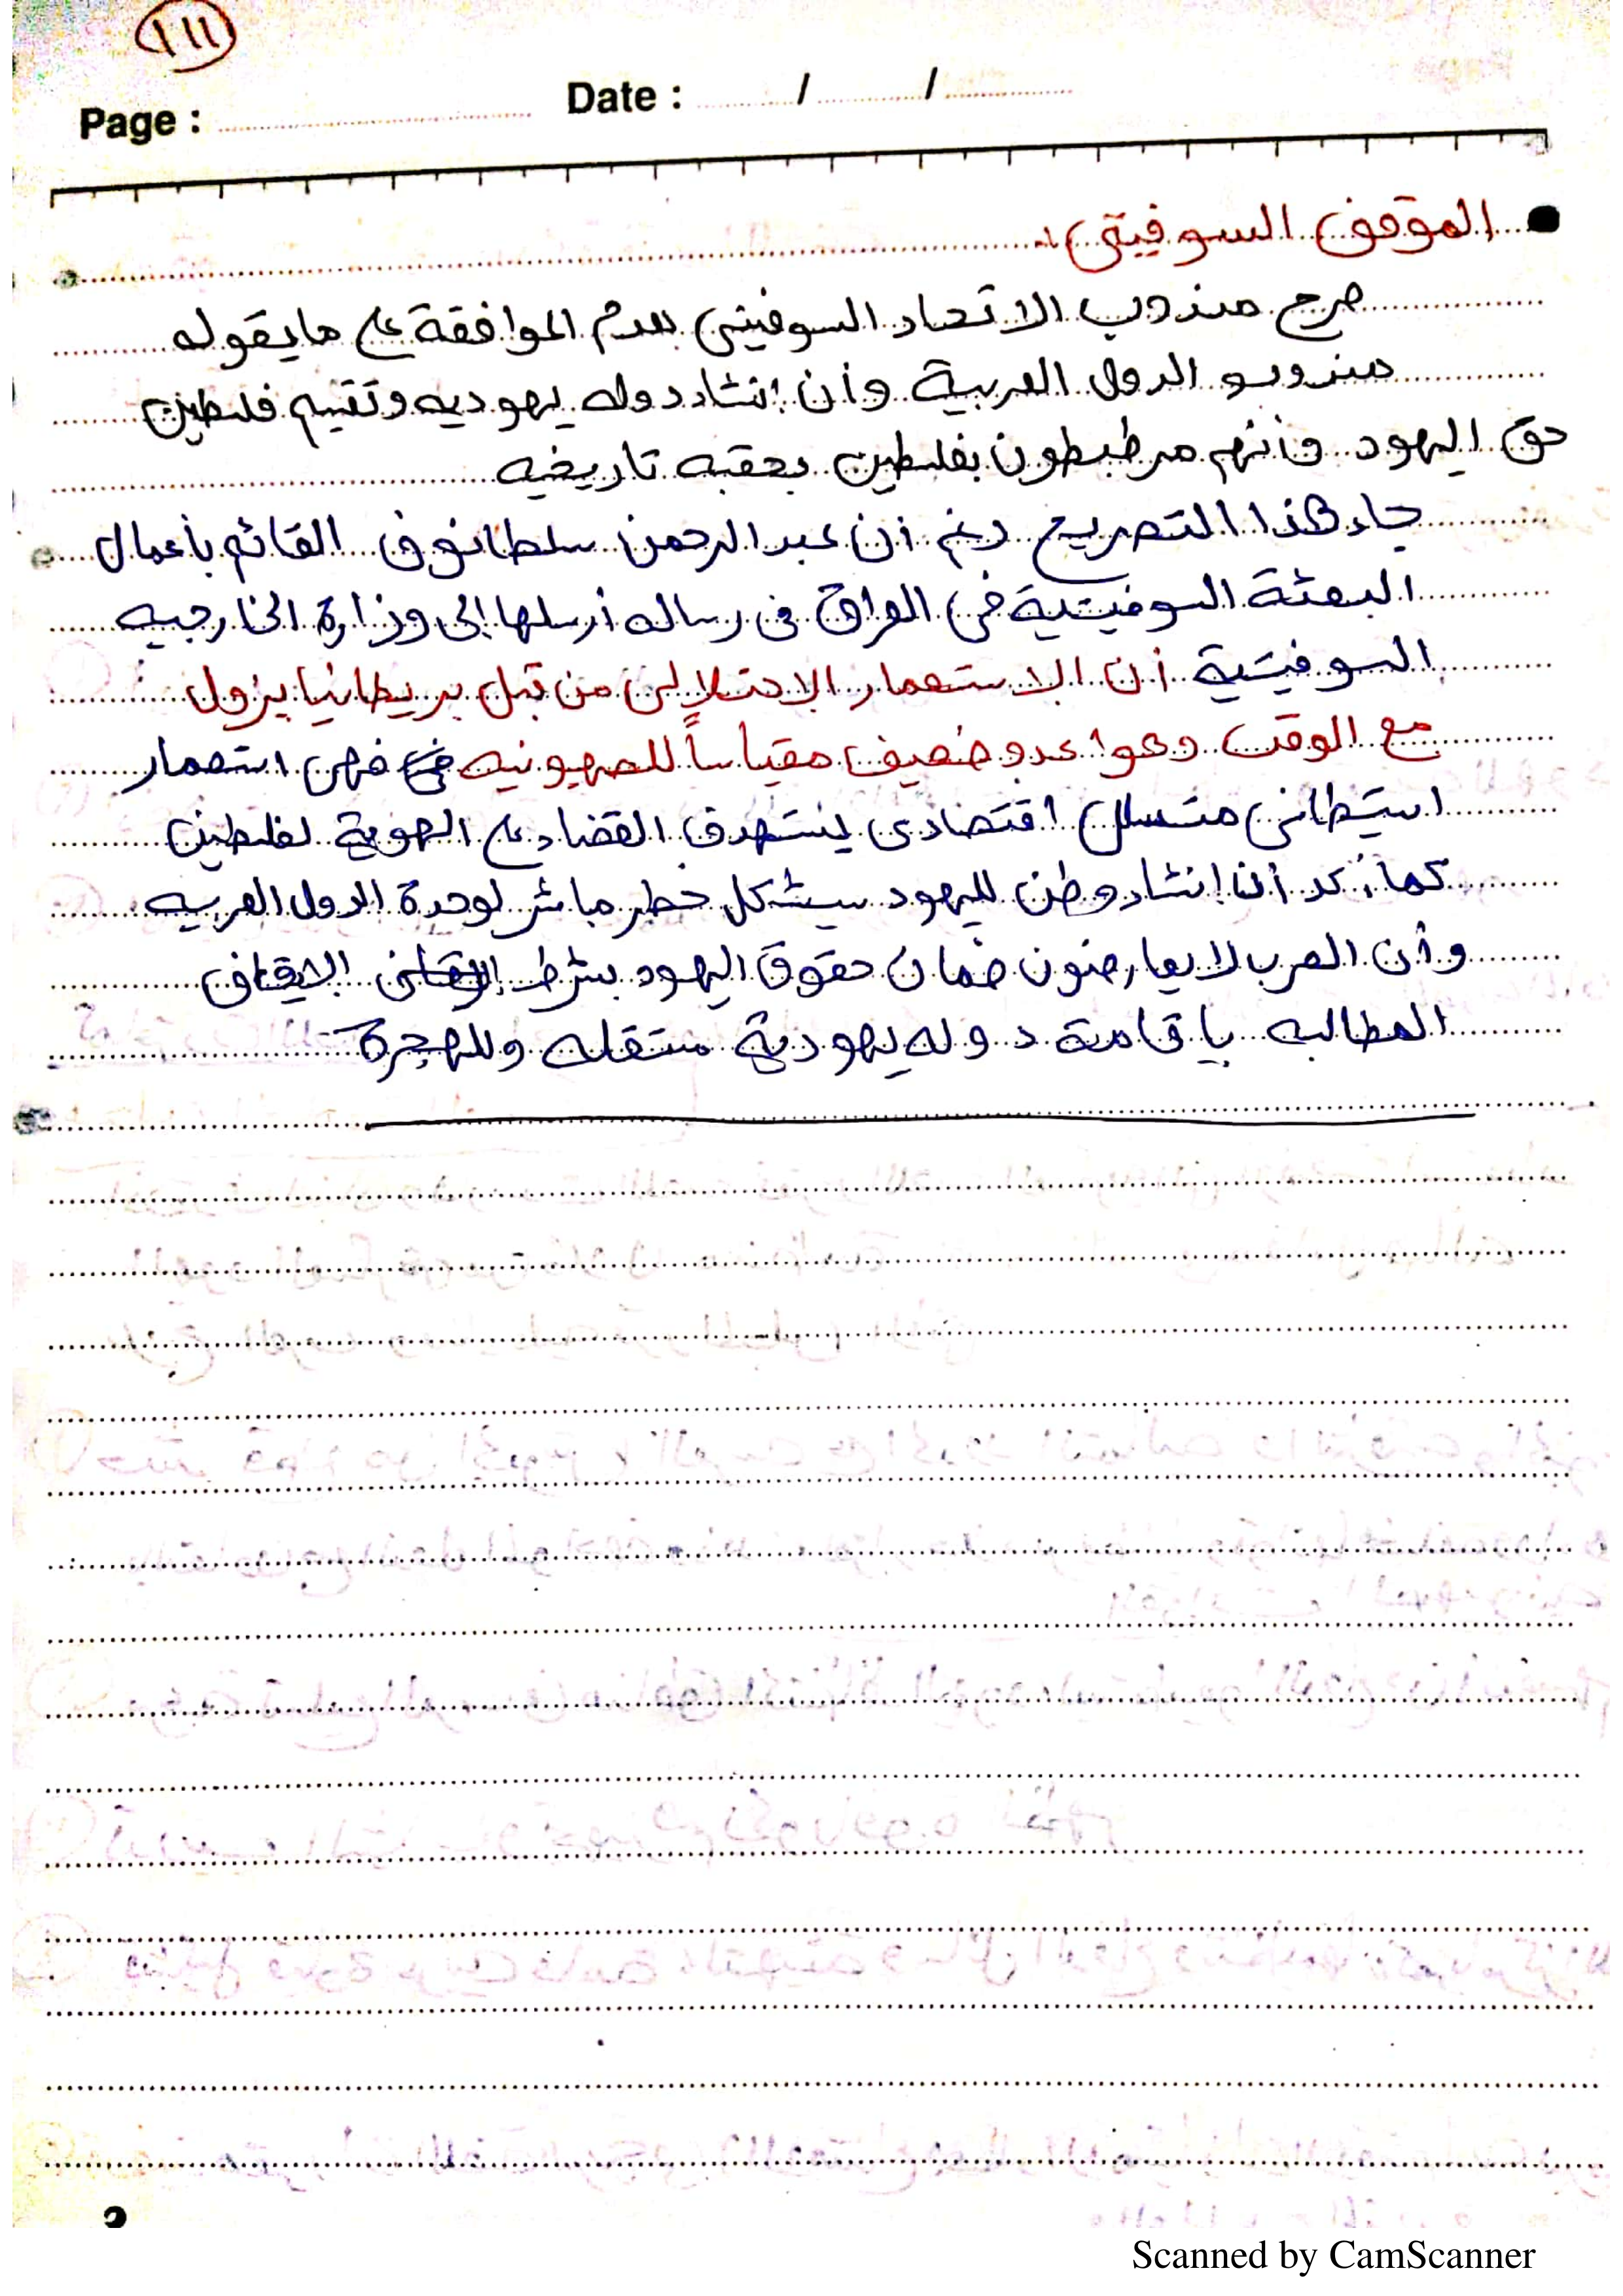 ١١١
Page : Date : / /
الموقف السوفيتى :
صرح مندوب الاتحاد السوفيتى بعدم الموافقة على ما يقوله
مندوبو الدول العربية وأن إنشاء دوله يهوديه وتقسيم فلسطين
حق اليهود وأنهم مرطبطون بفلسطين بحقبه تاريخيه
جاء هذا التصريح رغم أن عبد الرحمن سلطانوف القائم بأعمال
البعثة السوفيتية فى العراق فى رساله أرسلها إلى وزارة الخارجيه
السوفيتية أن الاستعمار الاحتلالى من قبل بريطانيا يزول
مع الوقت وهوا عدو ضعيف مقياساً للصهيونيه فهى استعمار
استيطانى متسلل اقتصادى يستهدف القضاء على الهوية لفلسطين
كما أكد أن إنشاء وطن لليهود سيشكل خطر مباشر لوحدة الدول العربيه
وأن العرب لا يعارضون ضمان حقوق اليهود بشرط ايقاف
المطالبه باقامة دوله يهودية مستقله وللهجرة
Scanned by CamScanner